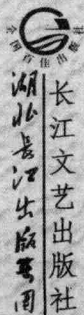 全国百佳出版社
湖北长江出版集团
长江文艺出版社